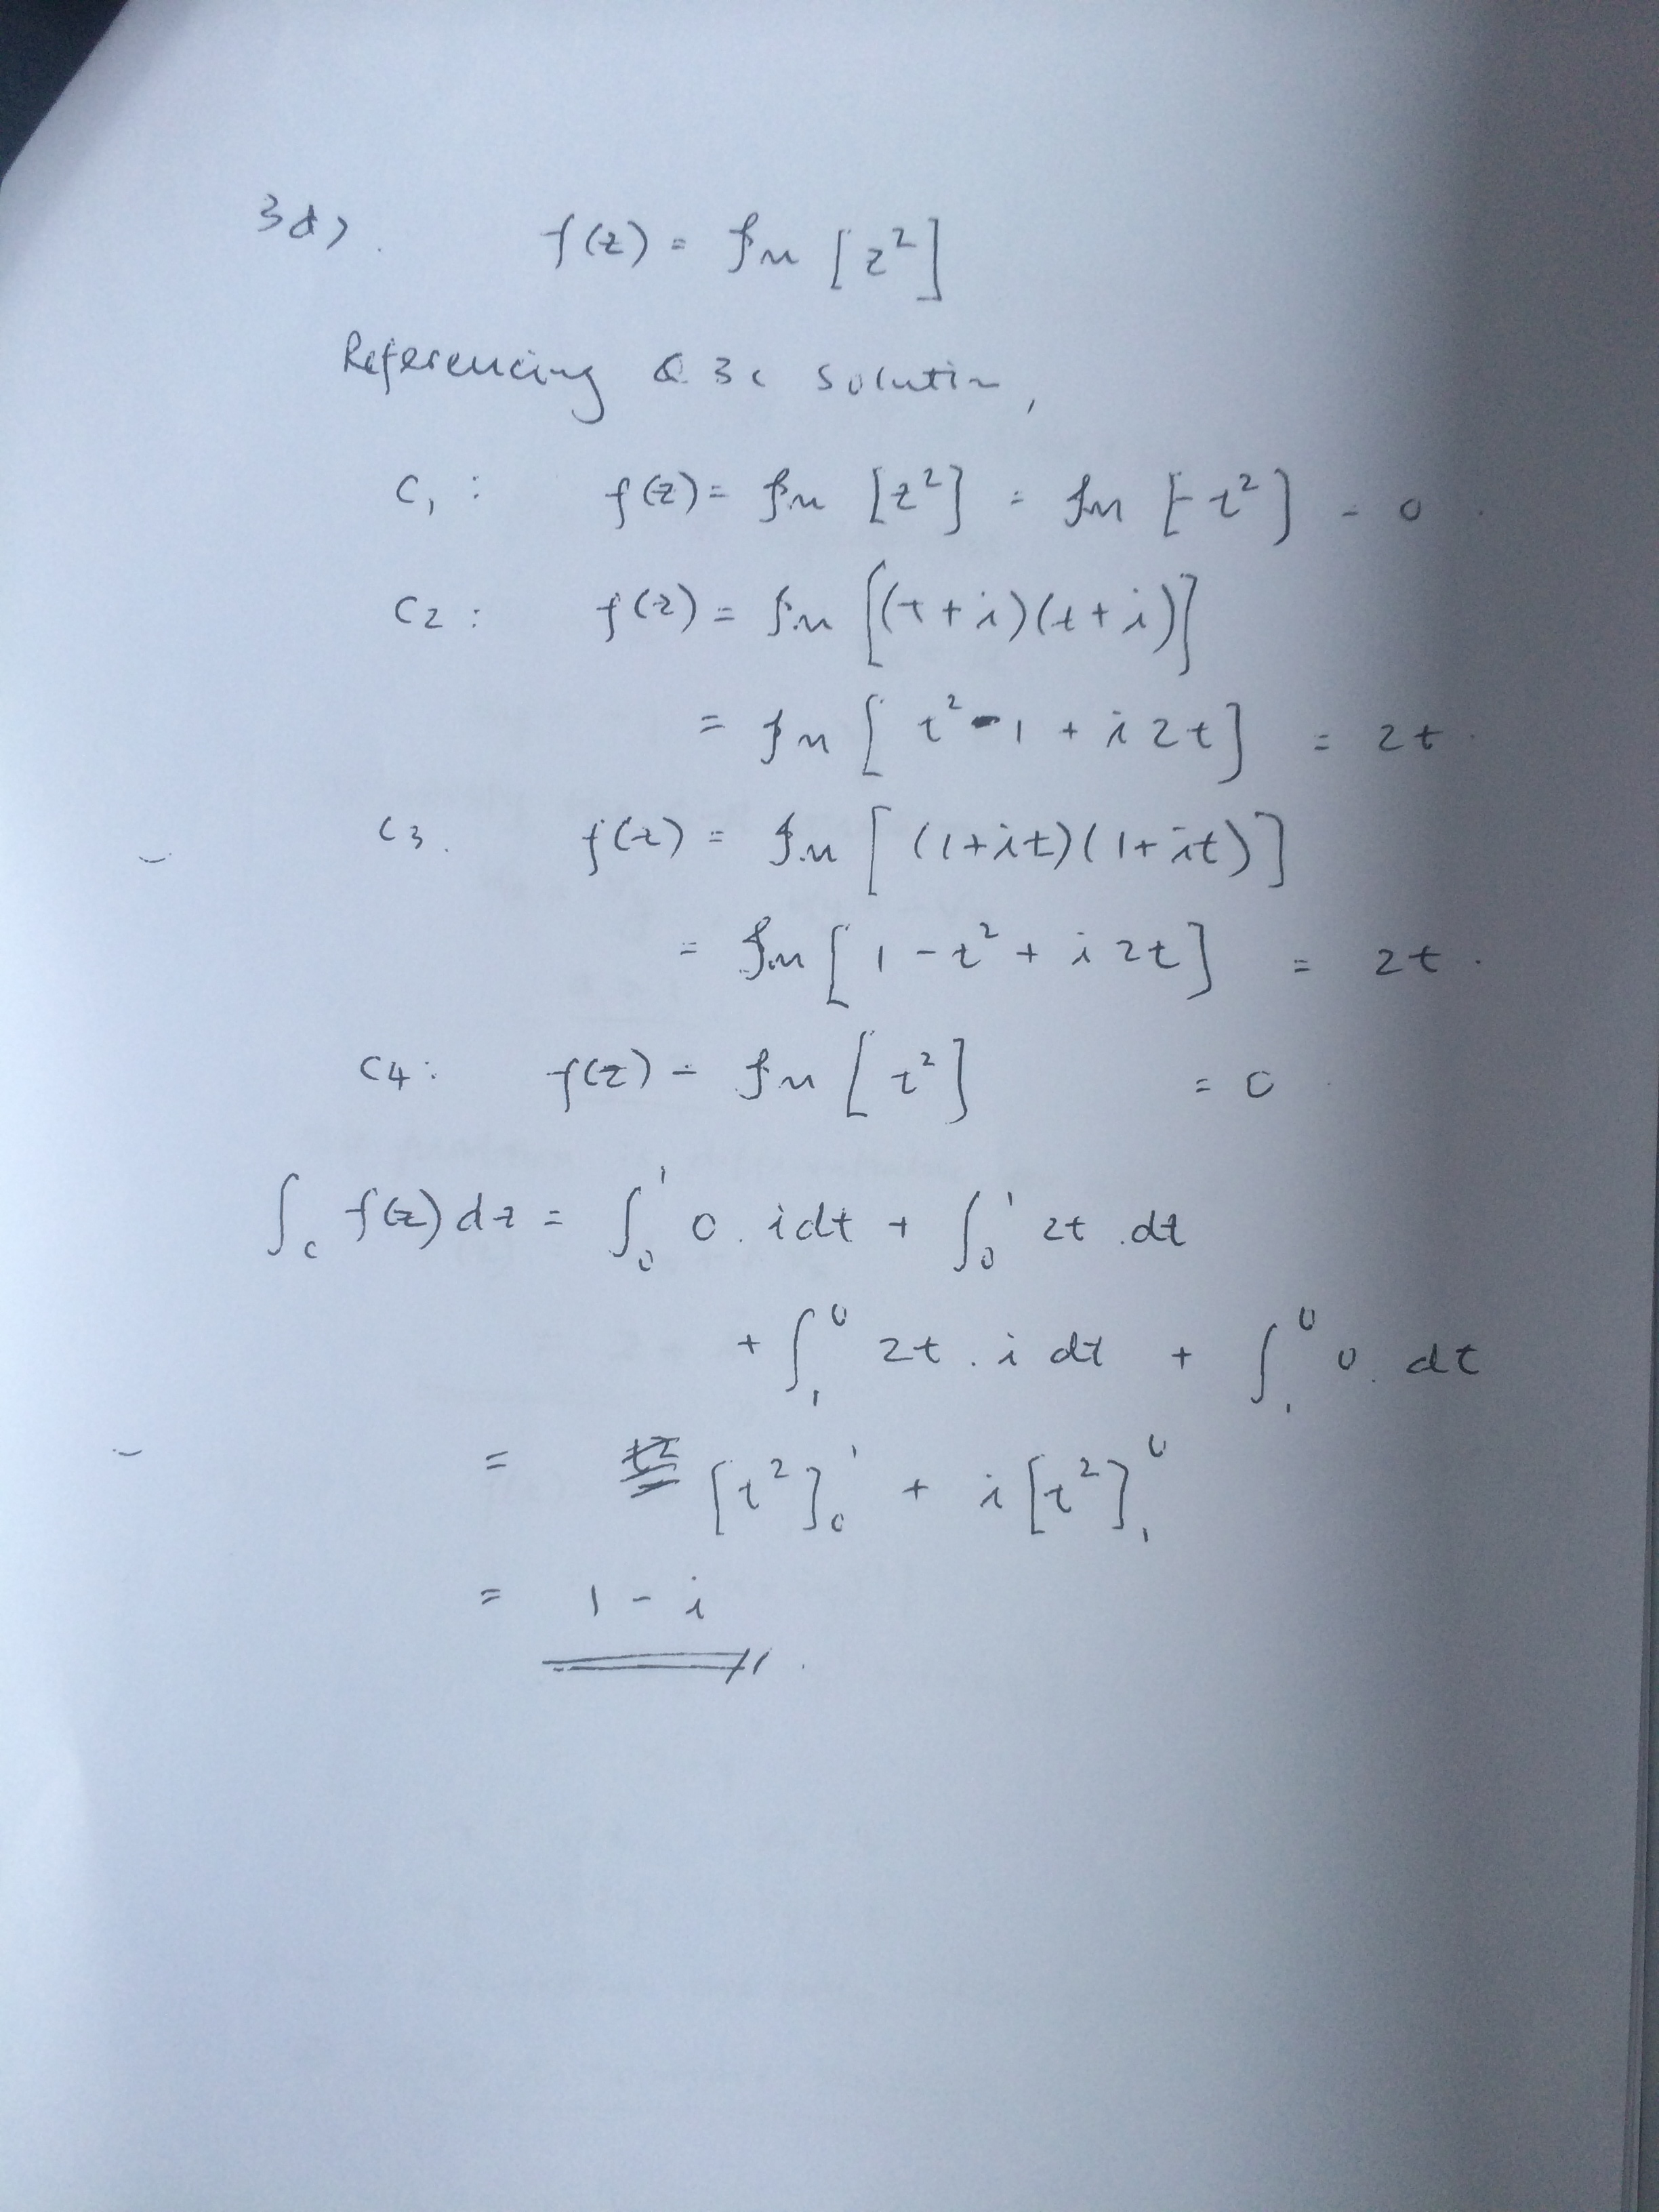 3d). f(z) = Im [z²]
Referencing Q3c solution,
C₁ : f(z) = Im [z²] = Im [-t²] = 0.
C2 : f(z) = Im [(t+i)(t+i)]
= Im [t² - 1 + i2t] = 2t.
C3. f(z) = Im [(1+it)(1+it)]
= Im [1 - t² + i2t] = 2t.
C4: f(z) = Im [t²] = 0
∫_c f(z)dz = ∫₀¹ 0. idt + ∫₀¹ 2t .dt
+ ∫₁⁰ 2t . i dt + ∫₁⁰ 0. dt
= [t²]₀¹ + i[t²]₁⁰
= 1 - i